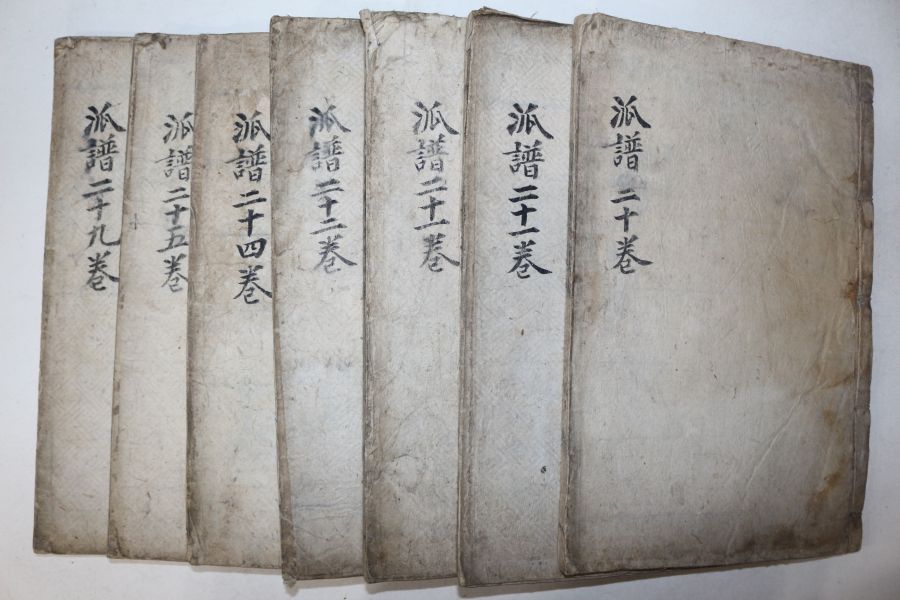 派譜 二十卷
派譜 二十一卷
派譜 二十一卷
派譜 二十二卷
派譜 二十四卷
派譜 二十五卷
派譜 二十九卷